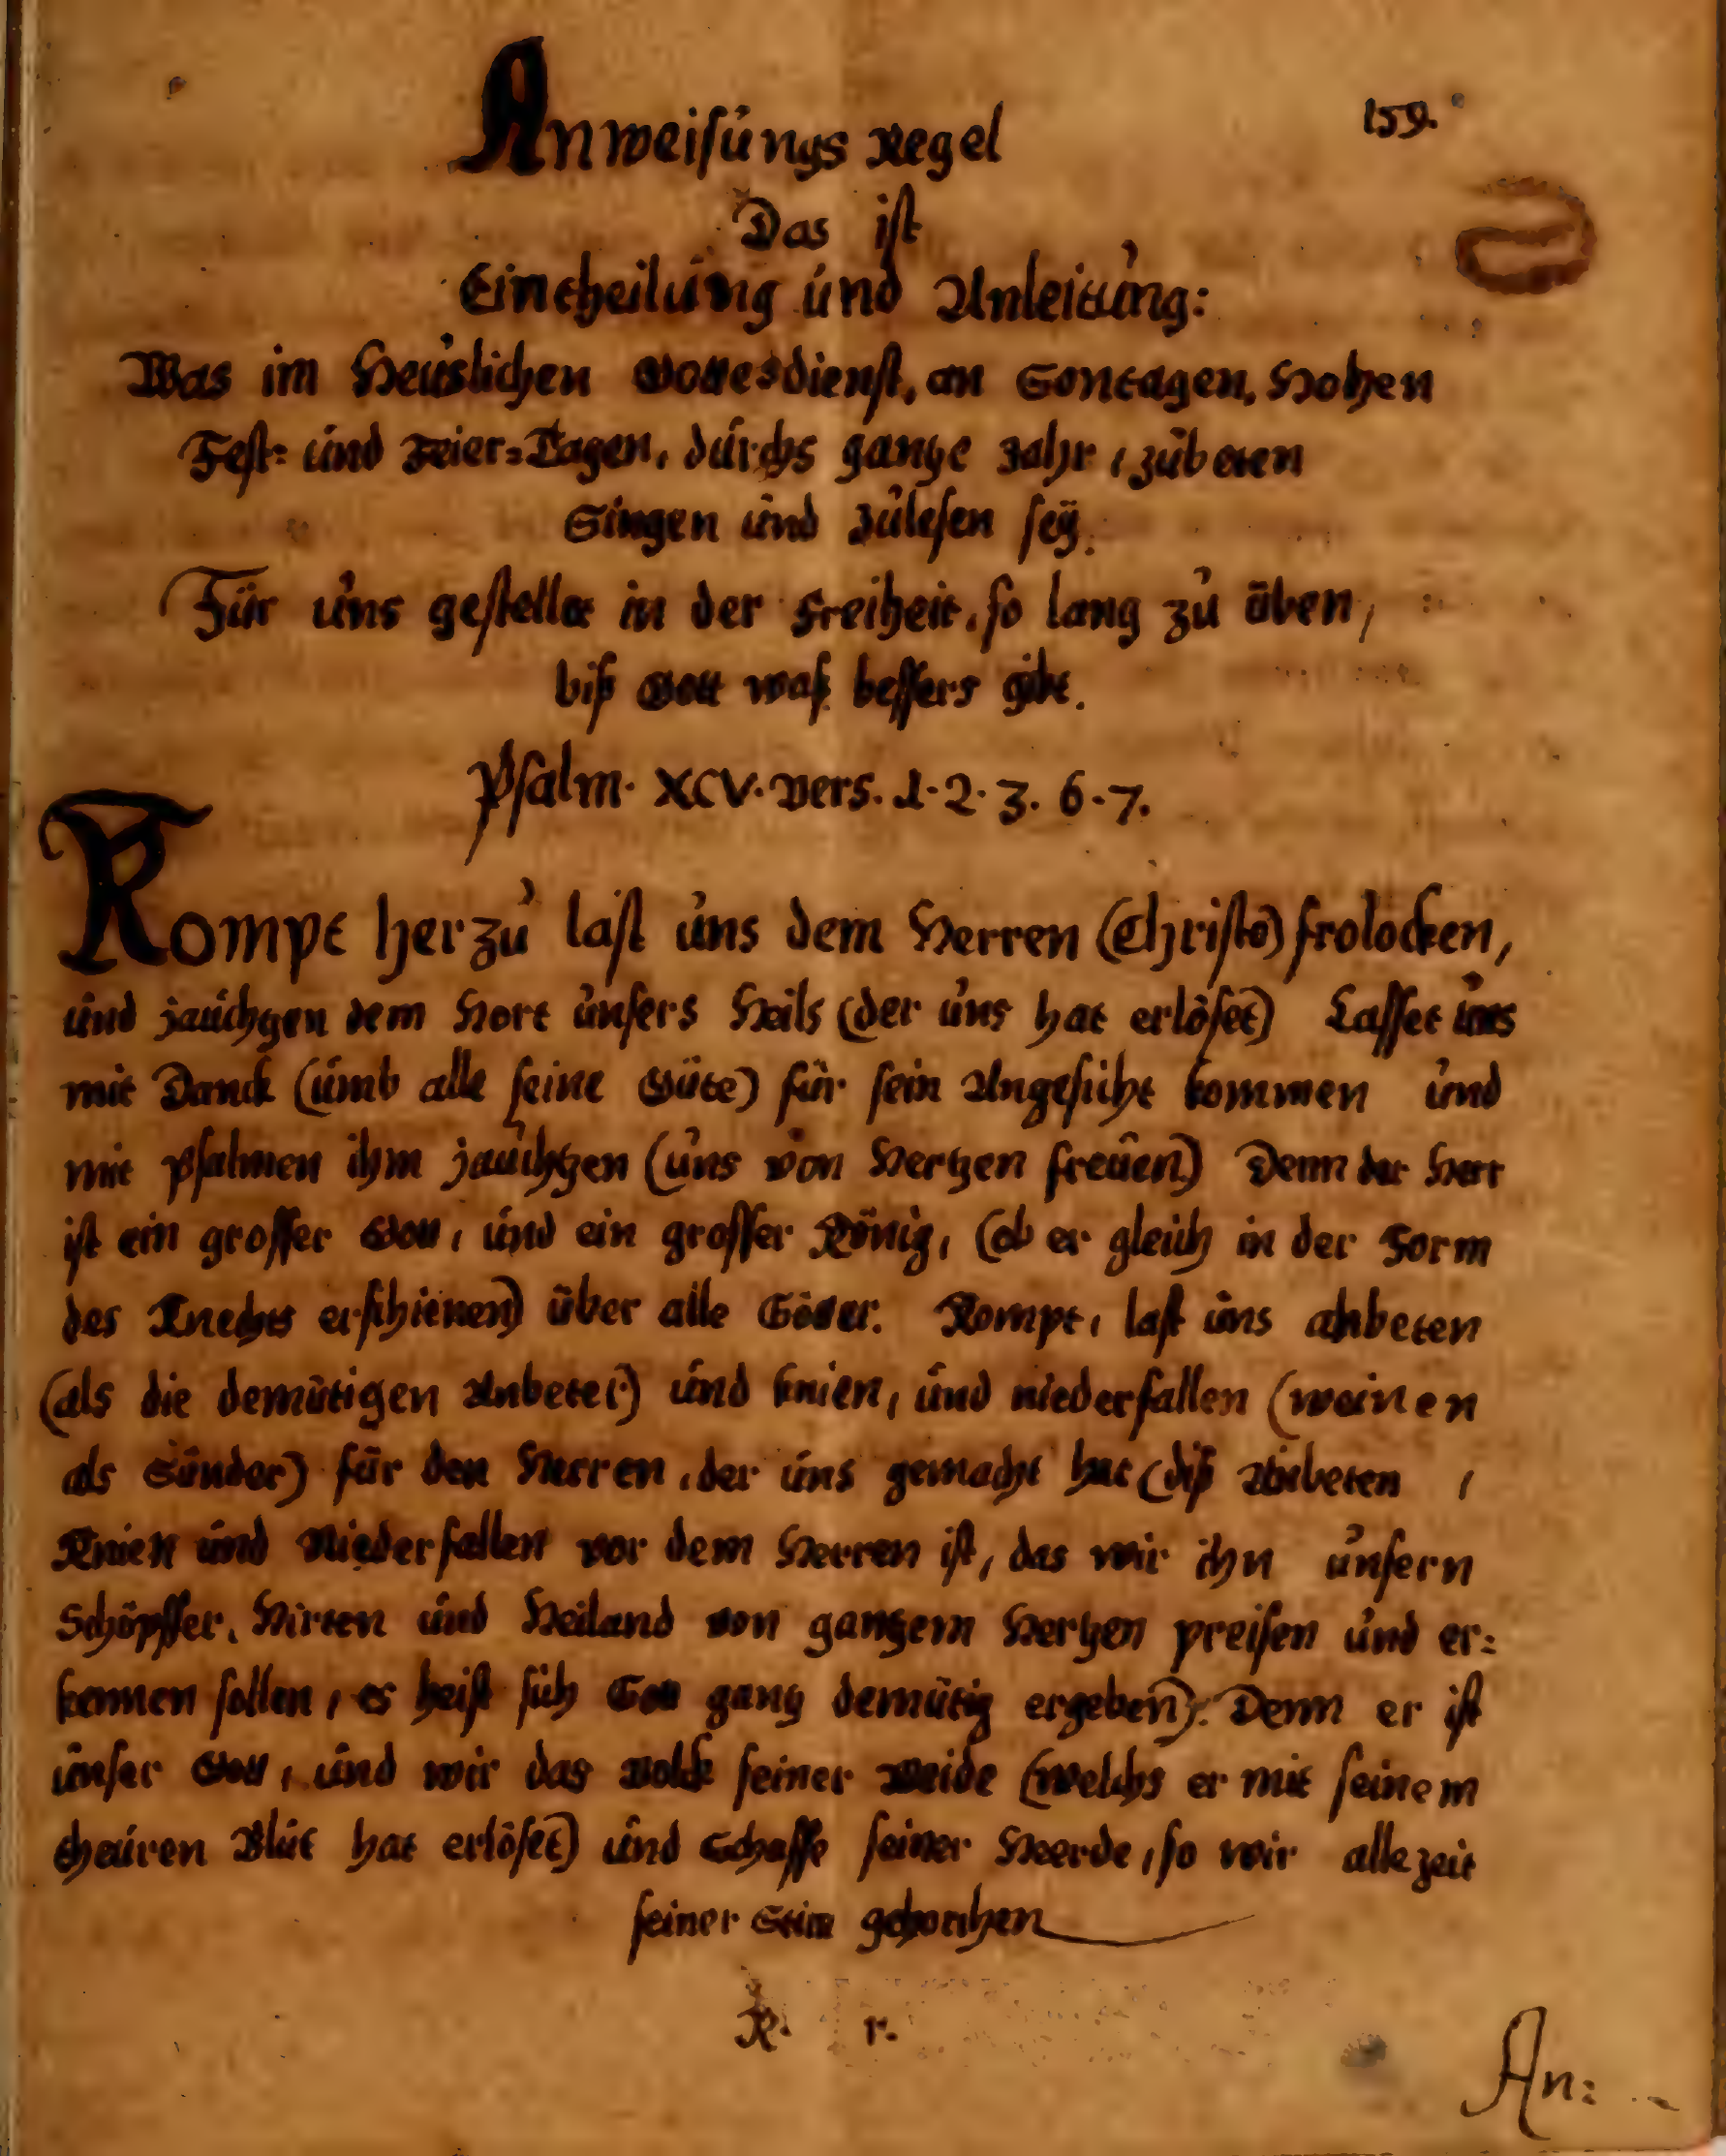 Anweisungs Regel
159.
Das ist
Eintheilung und Anleitung:
Was im Heuslichen Gottesdienst, an Sontagen, Hohen
Fest= und Feier=Tagen, durchs gantze Jahr, zubeten
Singen und zulesen seÿ.
Für uns gestellet in der Freiheit, so lang zu üben,
biß Gott waß bessers gibt.
Psalm. XCV. Vers. 1. 2. 3. 6. 7.
Kompt herzu last uns dem Herren (Christo) frolocken,
und jauchzen dem Hort unsers Heils (der uns hat erlöset) Lasset uns
mit Danck (umb alle seine Güte) für sein Angesicht kommen und
mit Psalmen ihm jauchtzen (uns von Hertzen freuen) Denn der Herr
ist ein grosser Gott, und ein grosser König, (ob er gleich in der Form
des Knechts erschienen) über alle Götter. Kompt, last uns anbeten
(als die demütigen Anbeter) und knien, und niederfallen (weinen
als Sünder) für den Herren, der uns gemacht hat (diß Anbeten ,
Knien und Niederfallen vor dem Herren ist, das wir ihn unsern
Schöpffer, Hirten und Heiland von gantzem Hertzen preisen und er=
kennen sollen, es heist sich Gott gantz demütig ergeben). Denn er ist
unser Gott, und wir das Volck seiner Weide (welchs er mit seinem
theuren Blut hat erlöset) und Schaffe seiner Heerde, so wir allezeit
seiner Stim gehorchen
R. r.
An: